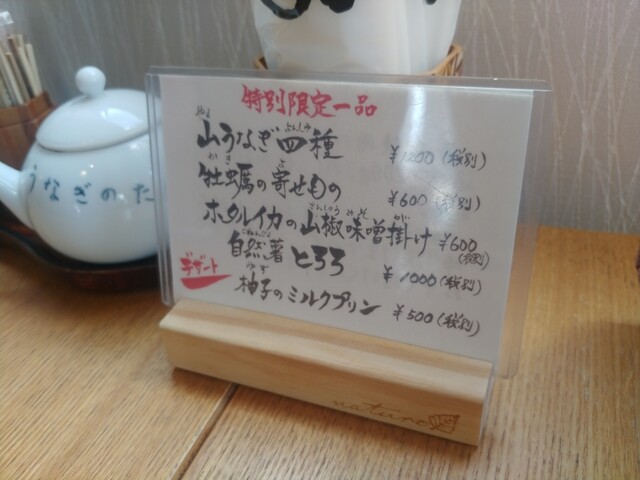 特別限定一品
山うなぎ四種 ¥1200(税別)
牡蠣の寄せもの ¥600(税別)
ホタルイカの山椒味噌掛け ¥600(税別)
自然薯とろろ ¥1000(税別)
デザート
柚子のミルクプリン ¥500(税別)
うなぎのた
nature